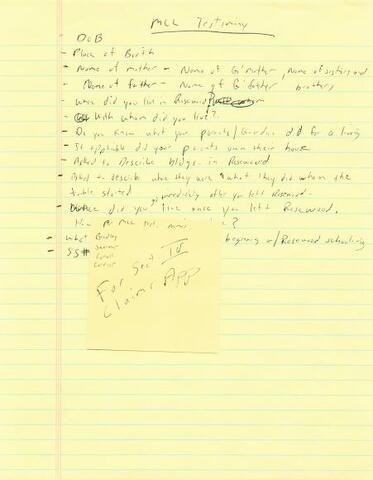 MCC Testimony
DOB
- Place of Birth
- Name of mother - Name of G'mother, Name of sisters and
- Name of father - Name of G'father brothers
- When did you live in Rosewood?
- With whom did you live?
- Do you know what your parents/Guardian did for a living
- If applicable did your parents own their house
- Asked to Describe bldgs. in Rosewood
- Asked to describe where they were & what they did when the
trouble started immediately after you left Rosewood -
- did you live once you left Rosewood.
- What beginning w/Rosewood schooling
- SS#
For Sect IV
Claims App